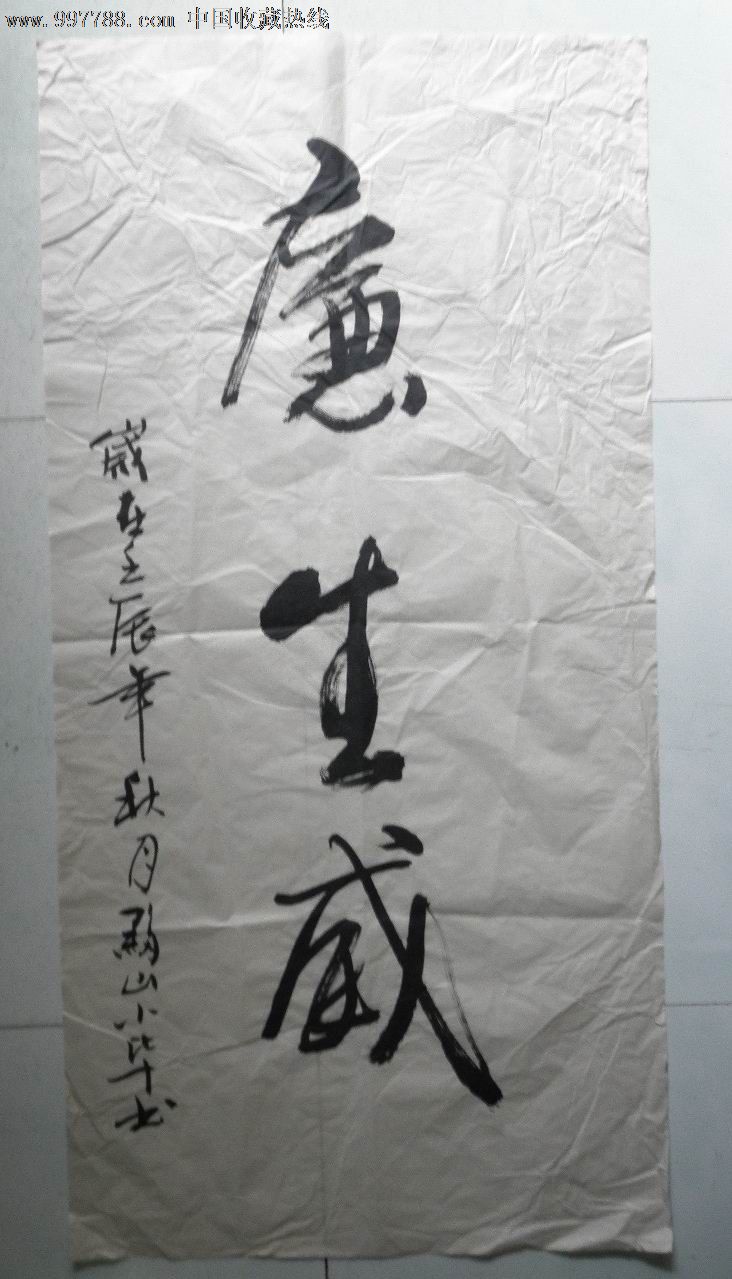 www.997788.com 中国收藏热线
廉生威
歲在壬辰年秋月 山小毕书